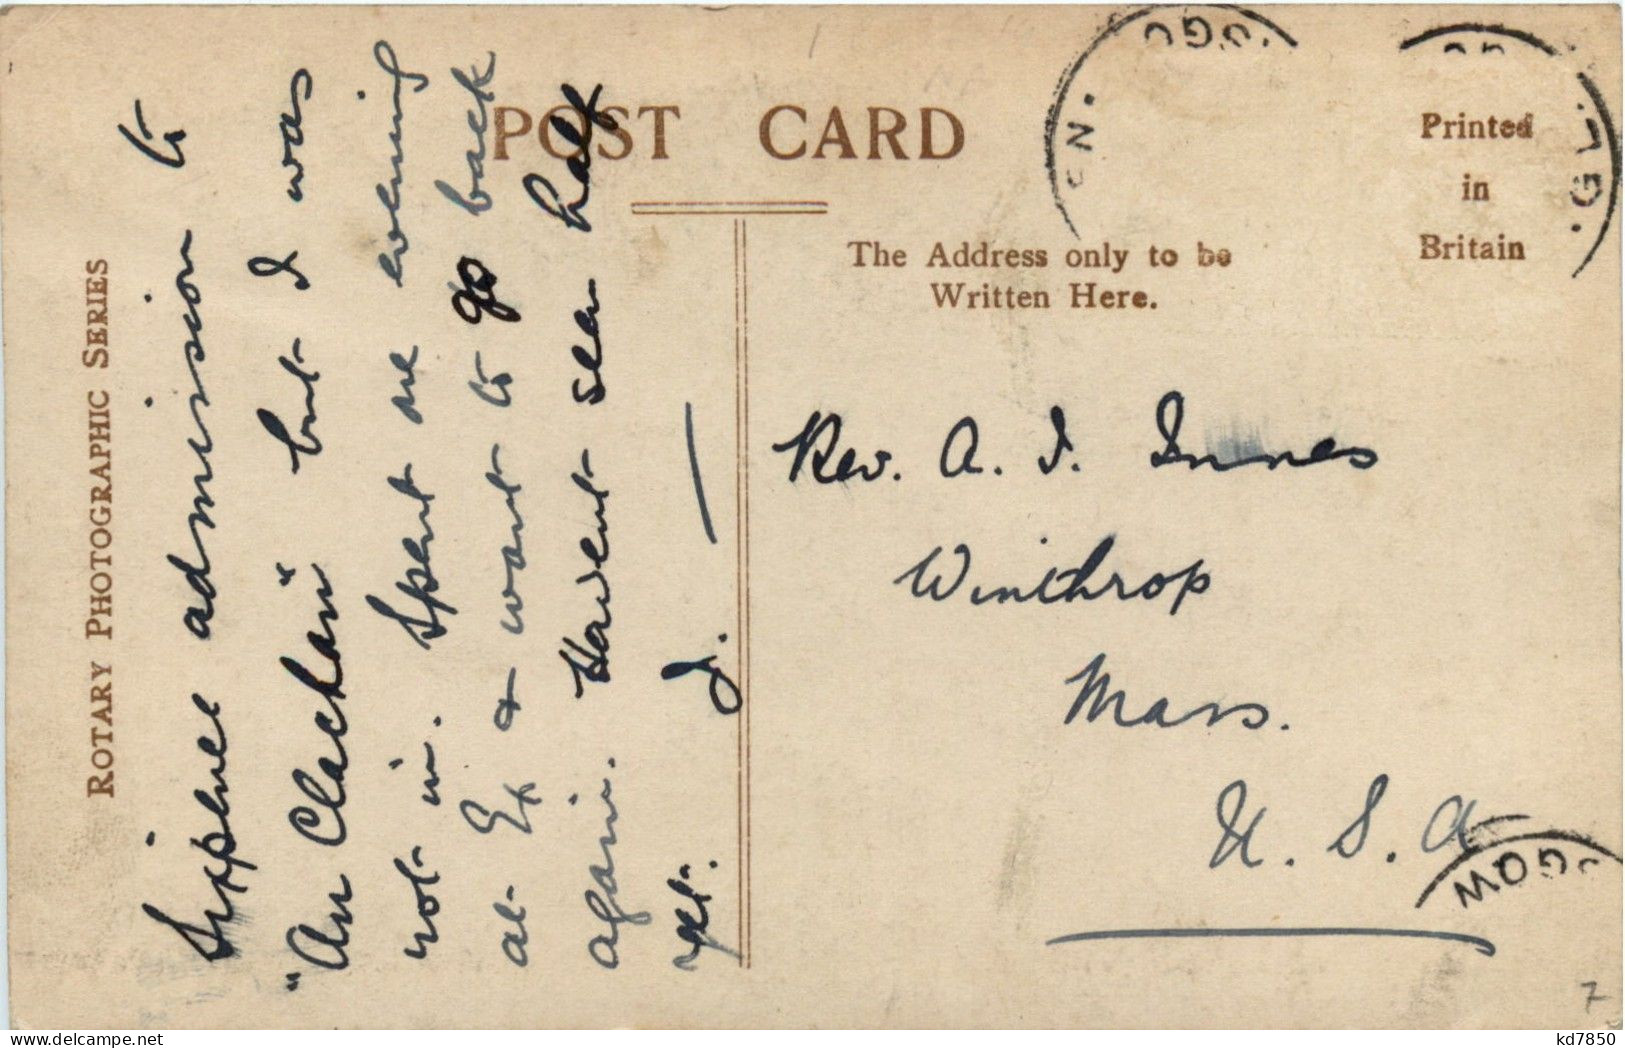 POST CARD
Printed
in
Britain
The Address only to be
Written Here.
ROTARY PHOTOGRAPHIC SERIES
Sixpence admission to
"An Clachan" but I was
not in. Spent one evening
at Ex + want to go back
again. Havent seen half
yet. J. —
Rev. A. J. Innes
Winthrop
Mass.
U. S. A
SGOW
7
kd7850